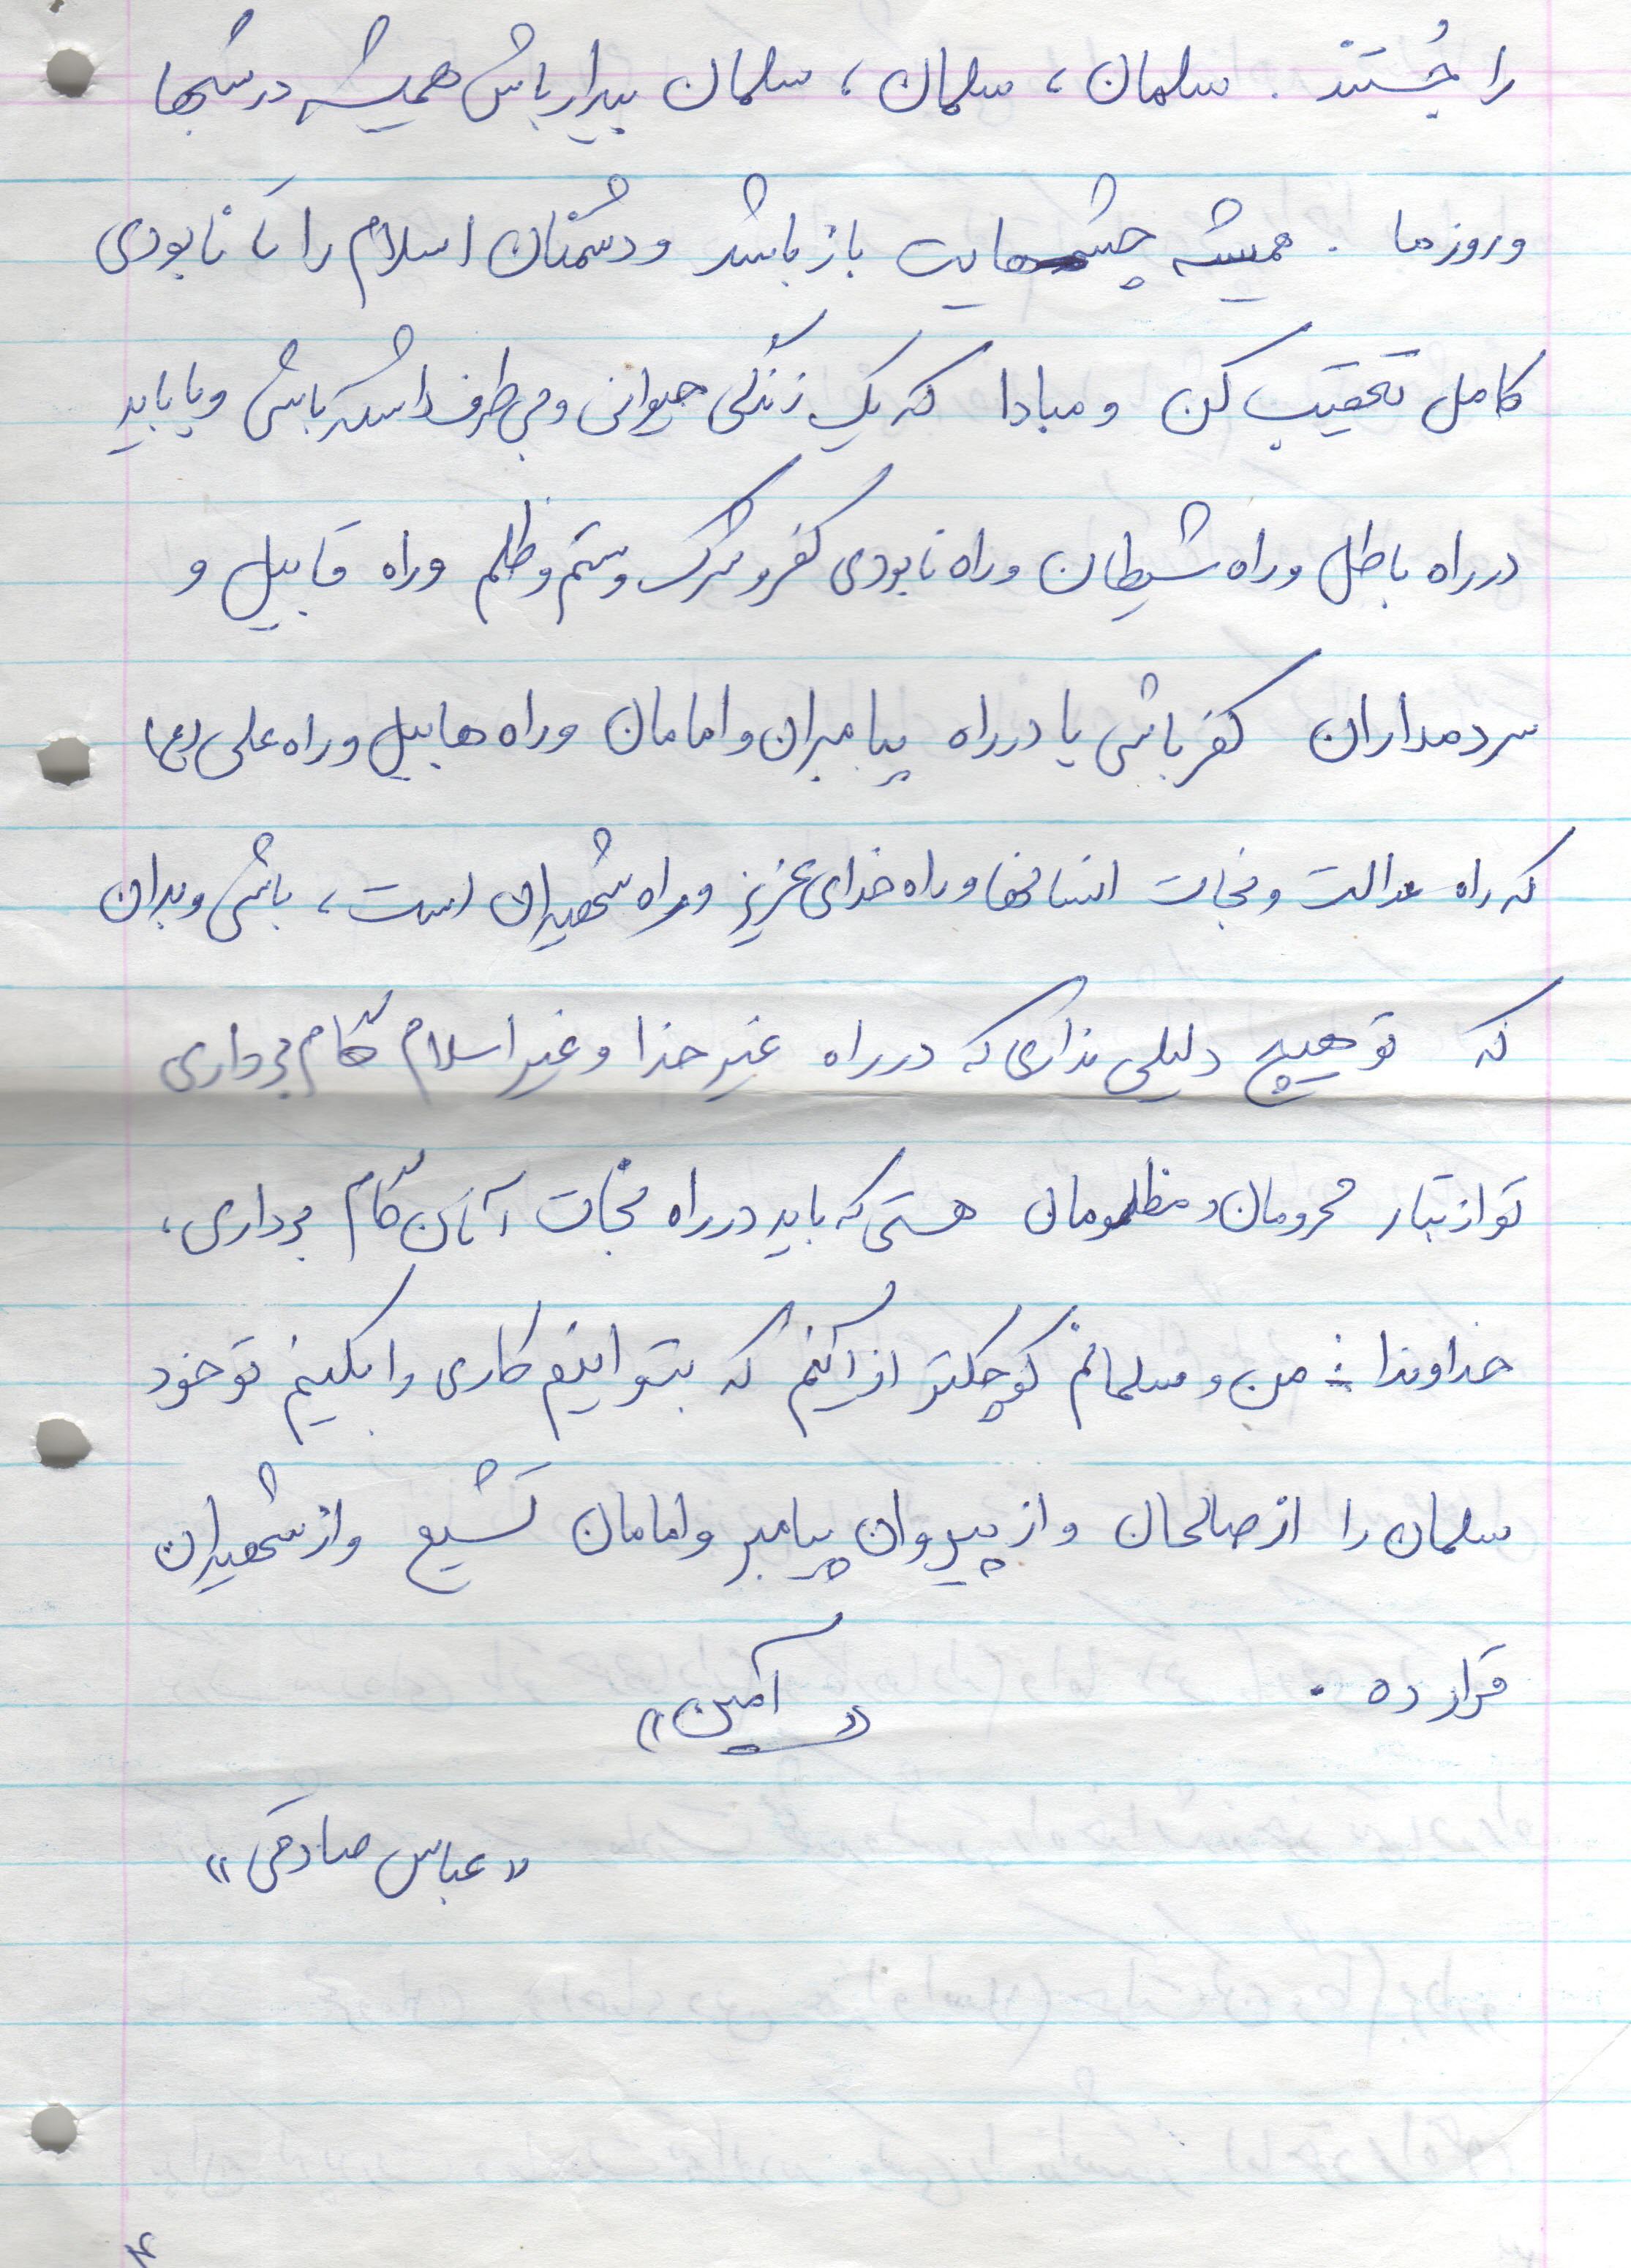 را جُستند . سلمان ، سلمان ، سلمان بیدار باش همیشه در شبها
و روزها . همیشه چشمهایت باز باشد و دشمنان اسلام را تا نابودی
کامل تعقیب کن و مبادا که یک زندگی حیوانی و بی طرف داشته باشی و یا باید
در راه باطل و راه شیطان و راه نابودی کفر و شرک و ستم و ظلم و راه قابیل و
سردمداران کفر باشی یا در راه پیامبران و امامان و راه هابیل و راه علی (ع)
که راه عدالت و نجات انسانها و راه خدای عزیز و راه شهیدان است ، باشی و بدان
که تو هیچ دلیلی نداری که در راه غیر خدا و غیر اسلام گام برداری
تو از تبار محرومان و مظلومان هستی که باید در راه نجات آنان گام برداری ،
خداوندا : من و سلمانم کوچکتر از آنیم که بتوانیم کاری را بکنیم تو خود
سلمان را از صالحان و از پیروان پیامبر و امامان تشیع و از شهیدان
قرار ده .
« آمین »
« عباس صادقی »
۴